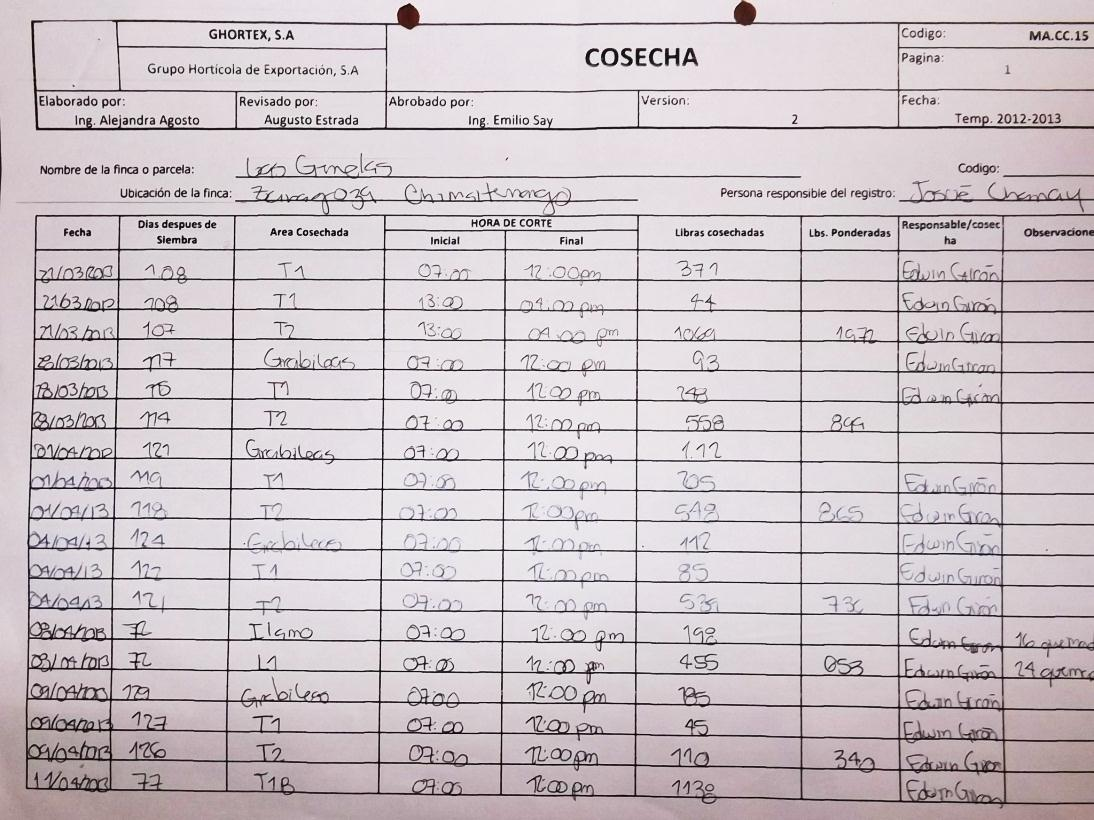 GHORTEX, S.A
Grupo Hortícola de Exportación, S.A
COSECHA
Codigo: MA.CC.15
Pagina: 1
Elaborado por: Ing. Alejandra Agosto
Revisado por: Augusto Estrada
Aprobado por: Ing. Emilio Say
Version: 2
Fecha: Temp. 2012-2013
Nombre de la finca o parcela: Las Codigo:
Ubicación de la finca: Zaragoza Chimaltenango Persona responsible del registro: Josué Chamay
Fecha Dias despues de Siembra Area Cosechada HORA DE CORTE Inicial Final Libras cosechadas Lbs. Ponderadas Responsable/cosecha Observacione
21/03/2013 108 T1 07:00 12:00pm 371 Edwin Girón
108 T1 13:00 04:00 pm 44 Edwin Girón
21/03/2013 107 T2 13:00 04:00 pm 1069 1972 Edwin Giron
117 Grabileas 07:00 12:00 pm 93 Edwin Giron
T1 07:00 12:00 pm 248 Edwin Girón
114 T2 07:00 12:00 pm 558
121 Grabileas 07:00 12:00 pm 1.12
119 T1 07:00 12:00 pm 205 Edwin Girón
01/04/13 118 T2 07:00 12:00pm 548 865 Edwin Giron
04/04/13 124 Grabileas 07:00 12:00pm 112 Edwin Girón
04/04/13 122 T1 07:00 12:00pm 85 Edwin Girón
04/04/13 121 T2 07:00 12:00 pm Edwin Girón
72 Ilamo 07:00 12:00 pm 198 Edwin Giron 16
72 L1 07:00 12:00 pm 455 653 Edwin Girón 24
129 Grabileas 07:00 12:00 pm 185 Edwin Girón
127 T1 07:00 12:00 pm 45 Edwin Girón
09/04/2013 126 T2 07:00 12:00pm 110 340 Edwin Giron
11/04/2013 77 T1B 07:00 12:00 pm 1138 Edwin Giron